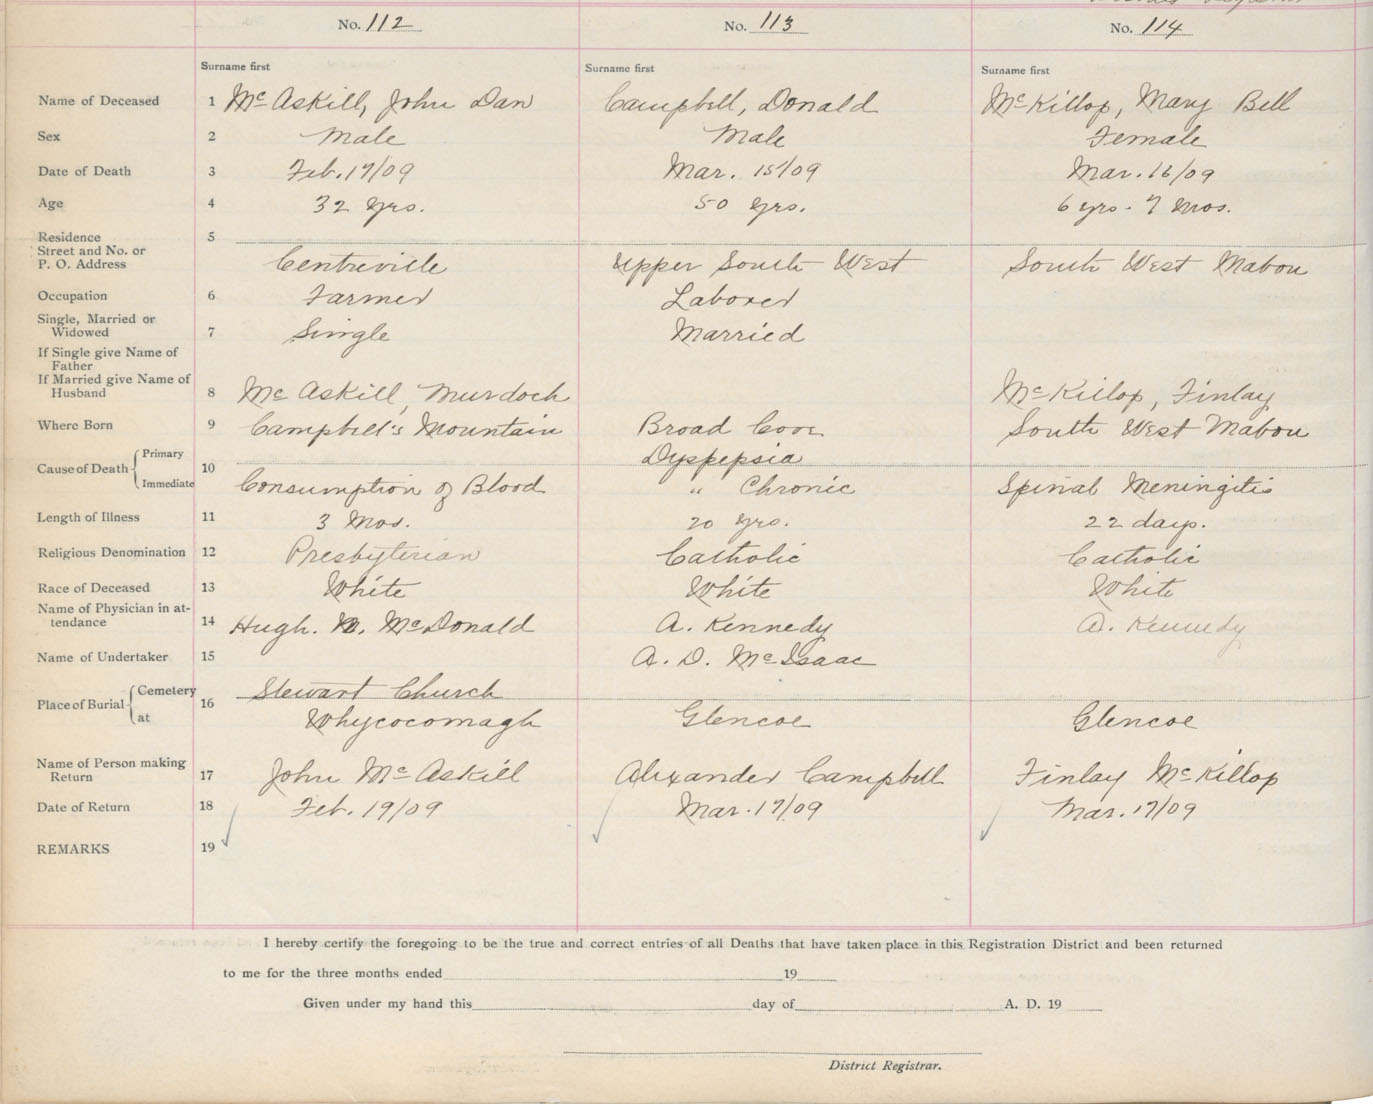 No. 112 No. 113 No. 114
Surname first Surname first Surname first
Name of Deceased 1 McAskill, John Dan Campbell, Donald McKillop, Mary Bell
Sex 2 Male Male Female
Date of Death 3 Feb. 17/09 Mar. 15/09 Mar. 16/09
Age 4 32 yrs. 50 yrs. 6 yrs. 7 mos.
Residence 5
Street and No. or
P. O. Address Centreville Upper South West South West Mabou
Occupation 6 Farmer Laborer
Single, Married or
Widowed 7 Single Married
If Single give Name of
Father
If Married give Name of
Husband 8 McAskill, Murdoch McKillop, Finlay
Where Born 9 Campbell's Mountain Broad Cove South West Mabou
Cause of Death Primary 10 Dyspepsia
Immediate Consumption of Blood " Chronic Spinal Meningitis
Length of Illness 11 3 Mos. 20 yrs. 22 days.
Religious Denomination 12 Presbyterian Catholic Catholic
Race of Deceased 13 White White White
Name of Physician in at-
tendance 14 Hugh. N. McDonald A. Kennedy A. Kennedy
Name of Undertaker 15 A. D. McIsaac
Place of Burial Cemetery 16 Stewart Church
at Whycocomagh Glencoe Glencoe
Name of Person making
Return 17 John McAskill Alexander Campbell Finlay McKillop
Date of Return 18 Feb. 19/09 Mar. 17/09 Mar. 17/09
REMARKS 19
I hereby certify the foregoing to be the true and correct entries of all Deaths that have taken place in this Registration District and been returned
to me for the three months ended 19
Given under my hand this day of A. D. 19
District Registrar.